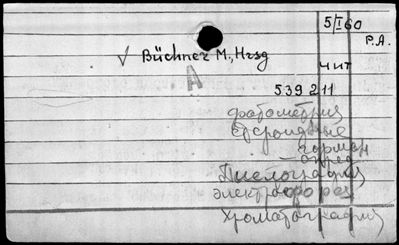 5/I 60
Р.А.
√ Büchner M., Hrsg
чит
А
539 211
фотометрия
стероидные
гормон
опред
Пиелография
электрофорез
хроматография